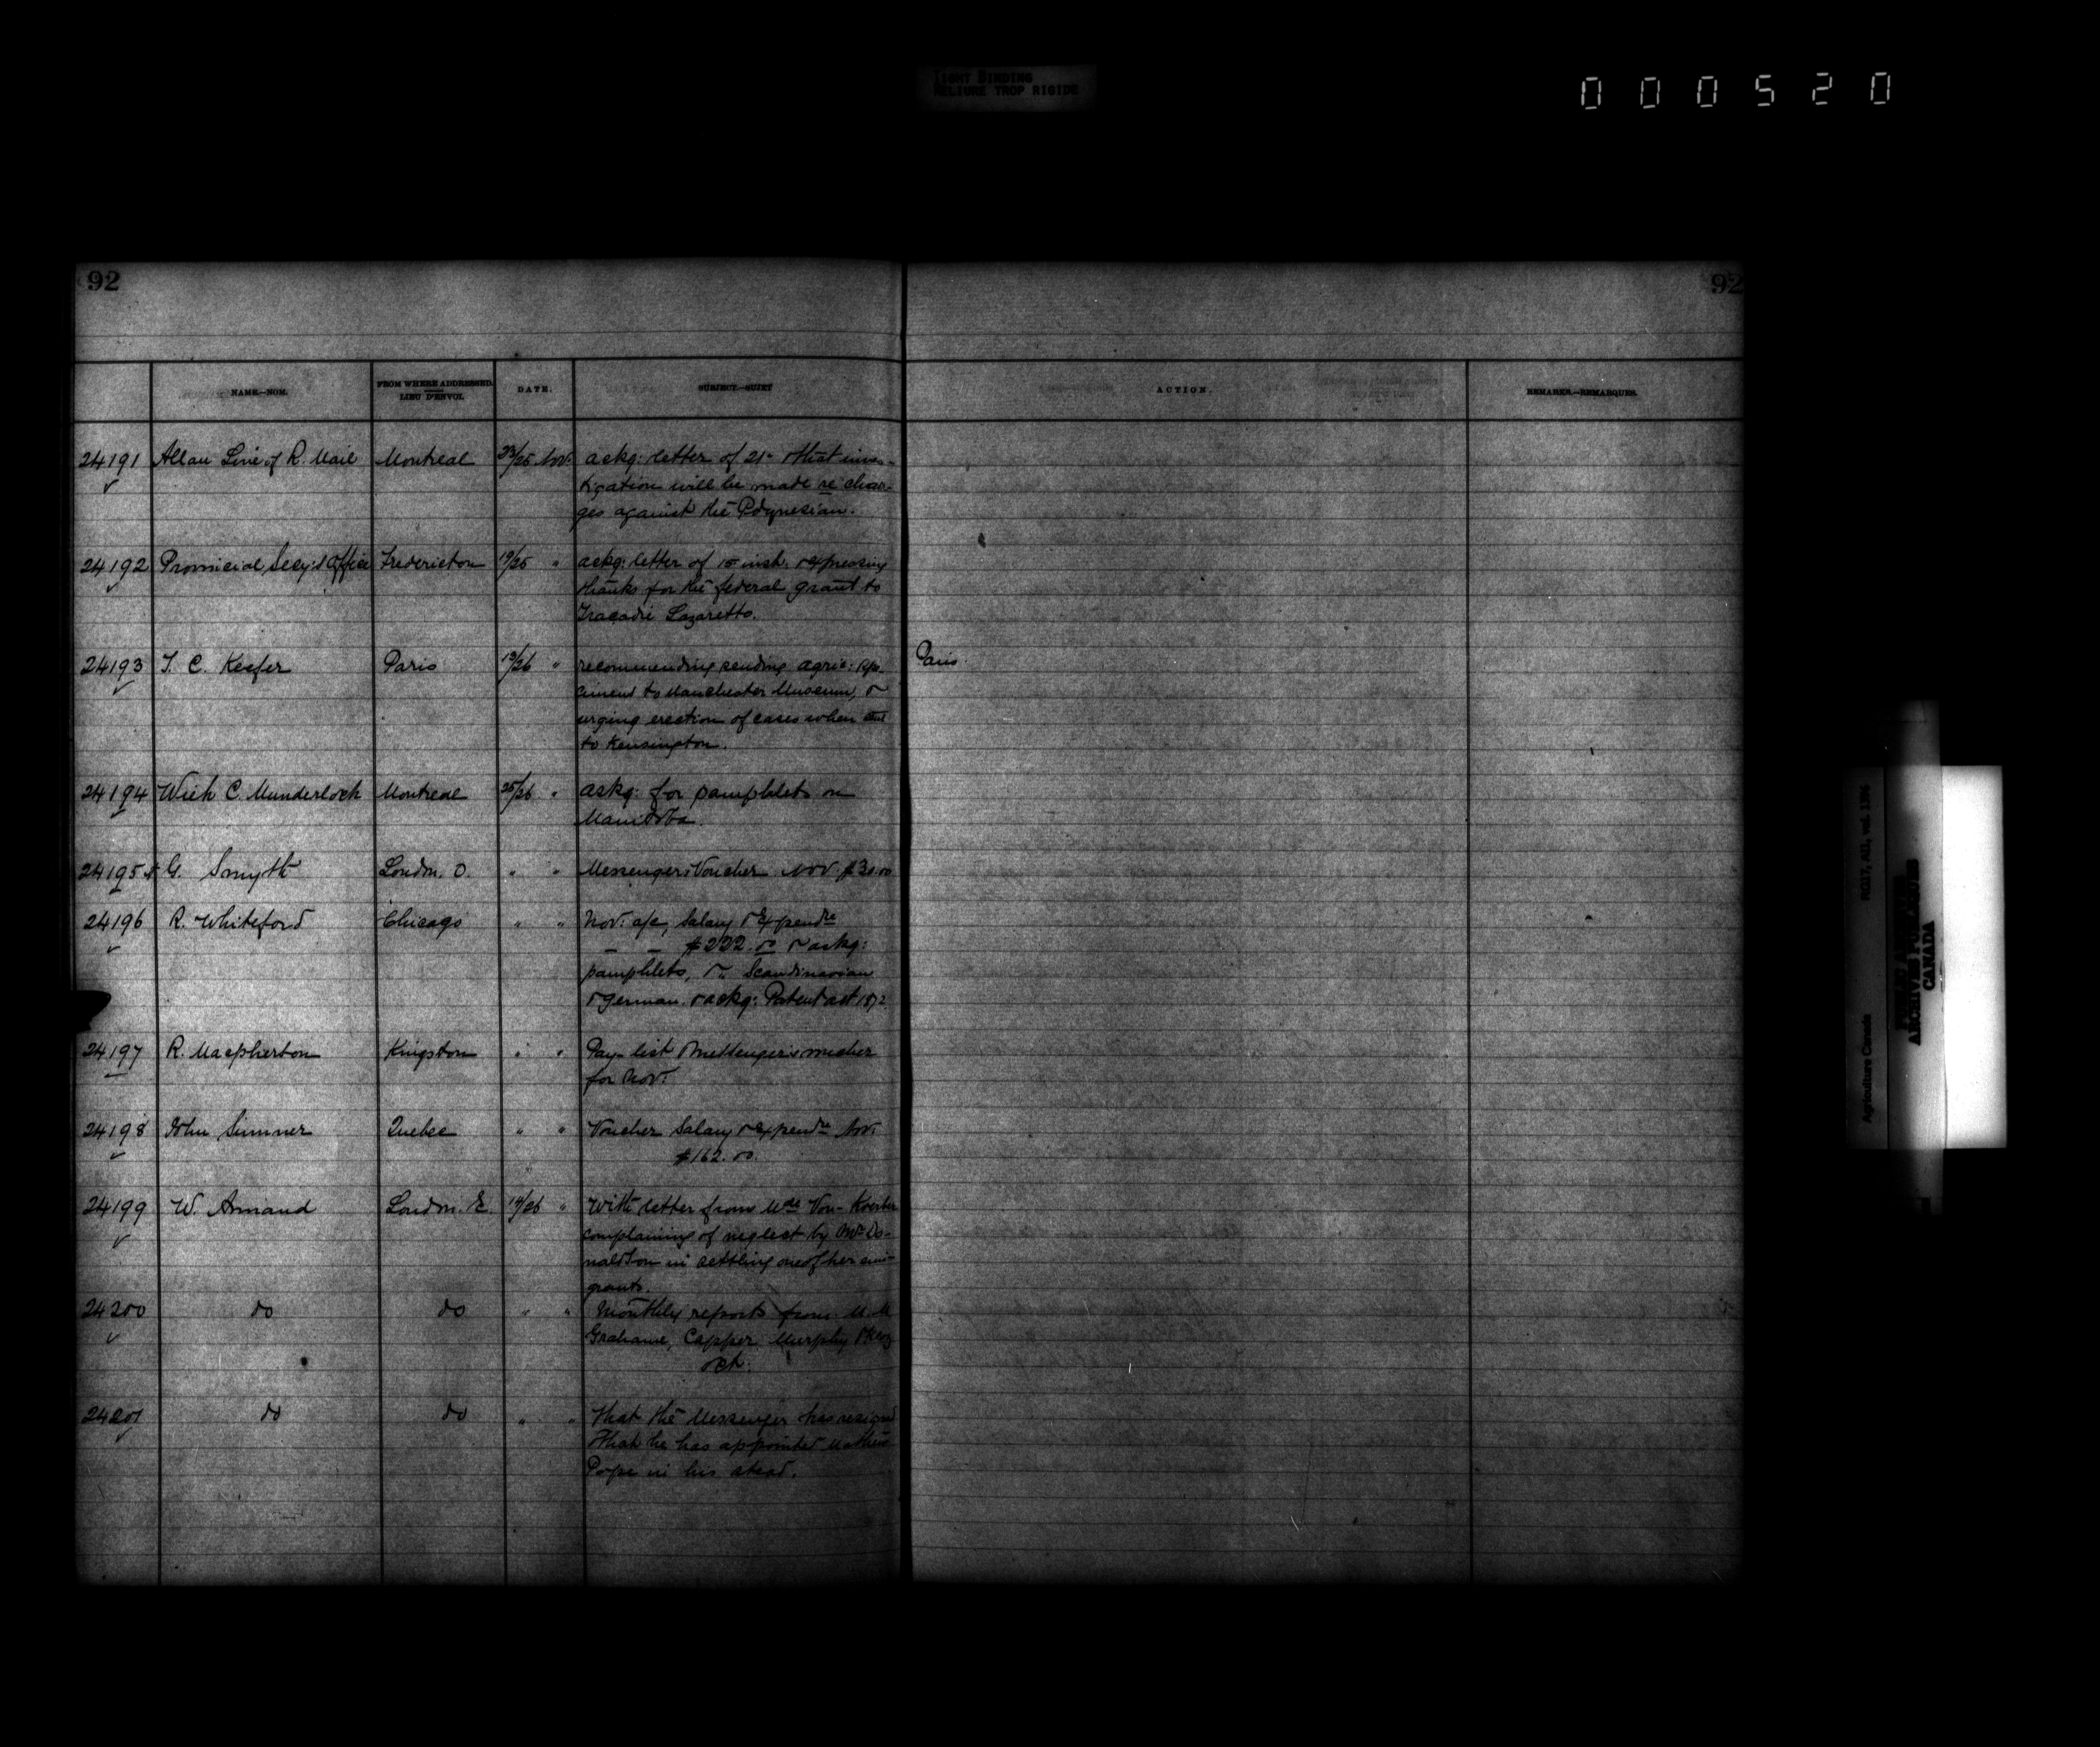 TIGHT BINDING
RELIURE TROP RIGIDE
000520
92
92
NAME.—NOM.
FROM WHERE ADDRESSED.
LIEU D'ENVOI.
DATE.
SUBJECT.—SUJET
ACTION.
REMARKS.—REMARQUES.
24191 Allan Line of R. Mail Montreal 23/25 Nov. ackg: letter of 21st & that inves-
tigation will be made re char-
ges against the Polynesian.
24192 Provincial Secy's Office Fredericton 19/25 " ackg: letter of 15 inst. & expressing
thanks for the federal grant to
Tracadie Lazaretto.
24193 T. C. Keefer Paris 13/26 " recommending sending agric: spe- Paris
cimens to Manchester Museum, &
urging erection of cases when
to Kensington.
24194 C. Munderloch Montreal 25/26 " askg: for pamphlets on
Manitoba.
24195 G. Smyth London. O. " " Messengers Voucher Nov. $30.00
24196 R. Whiteford Chicago " " Nov: a/c, Salary & Expendre
$222.00 & askg:
pamphlets, & Scandinavian
& German. & ackg: Patent act 1872
24197 R. Macpherson Kingston " " Pay-list & Messenger's voucher
for Nov:
24198 John Sumner Quebec " " Voucher Salary & expendre Nov:
$162.00.
24199 W. Annand London. E. 14/26 " With letter from Mde Von-Koerber
complaining of neglect by Mr Do-
naldson in settling one of her emi-
grants.
24200 do do " " Monthly reports from M.M
Grahame, Capper Murphy &
Oct.
24201 do do " " That the Messenger has resigned
& that he has appointed Mathew
Pope in his stead.
Agriculture Canada RG17, AII, vol. 1396
PUBLIC ARCHIVES
ARCHIVES PUBLIQUES
CANADA